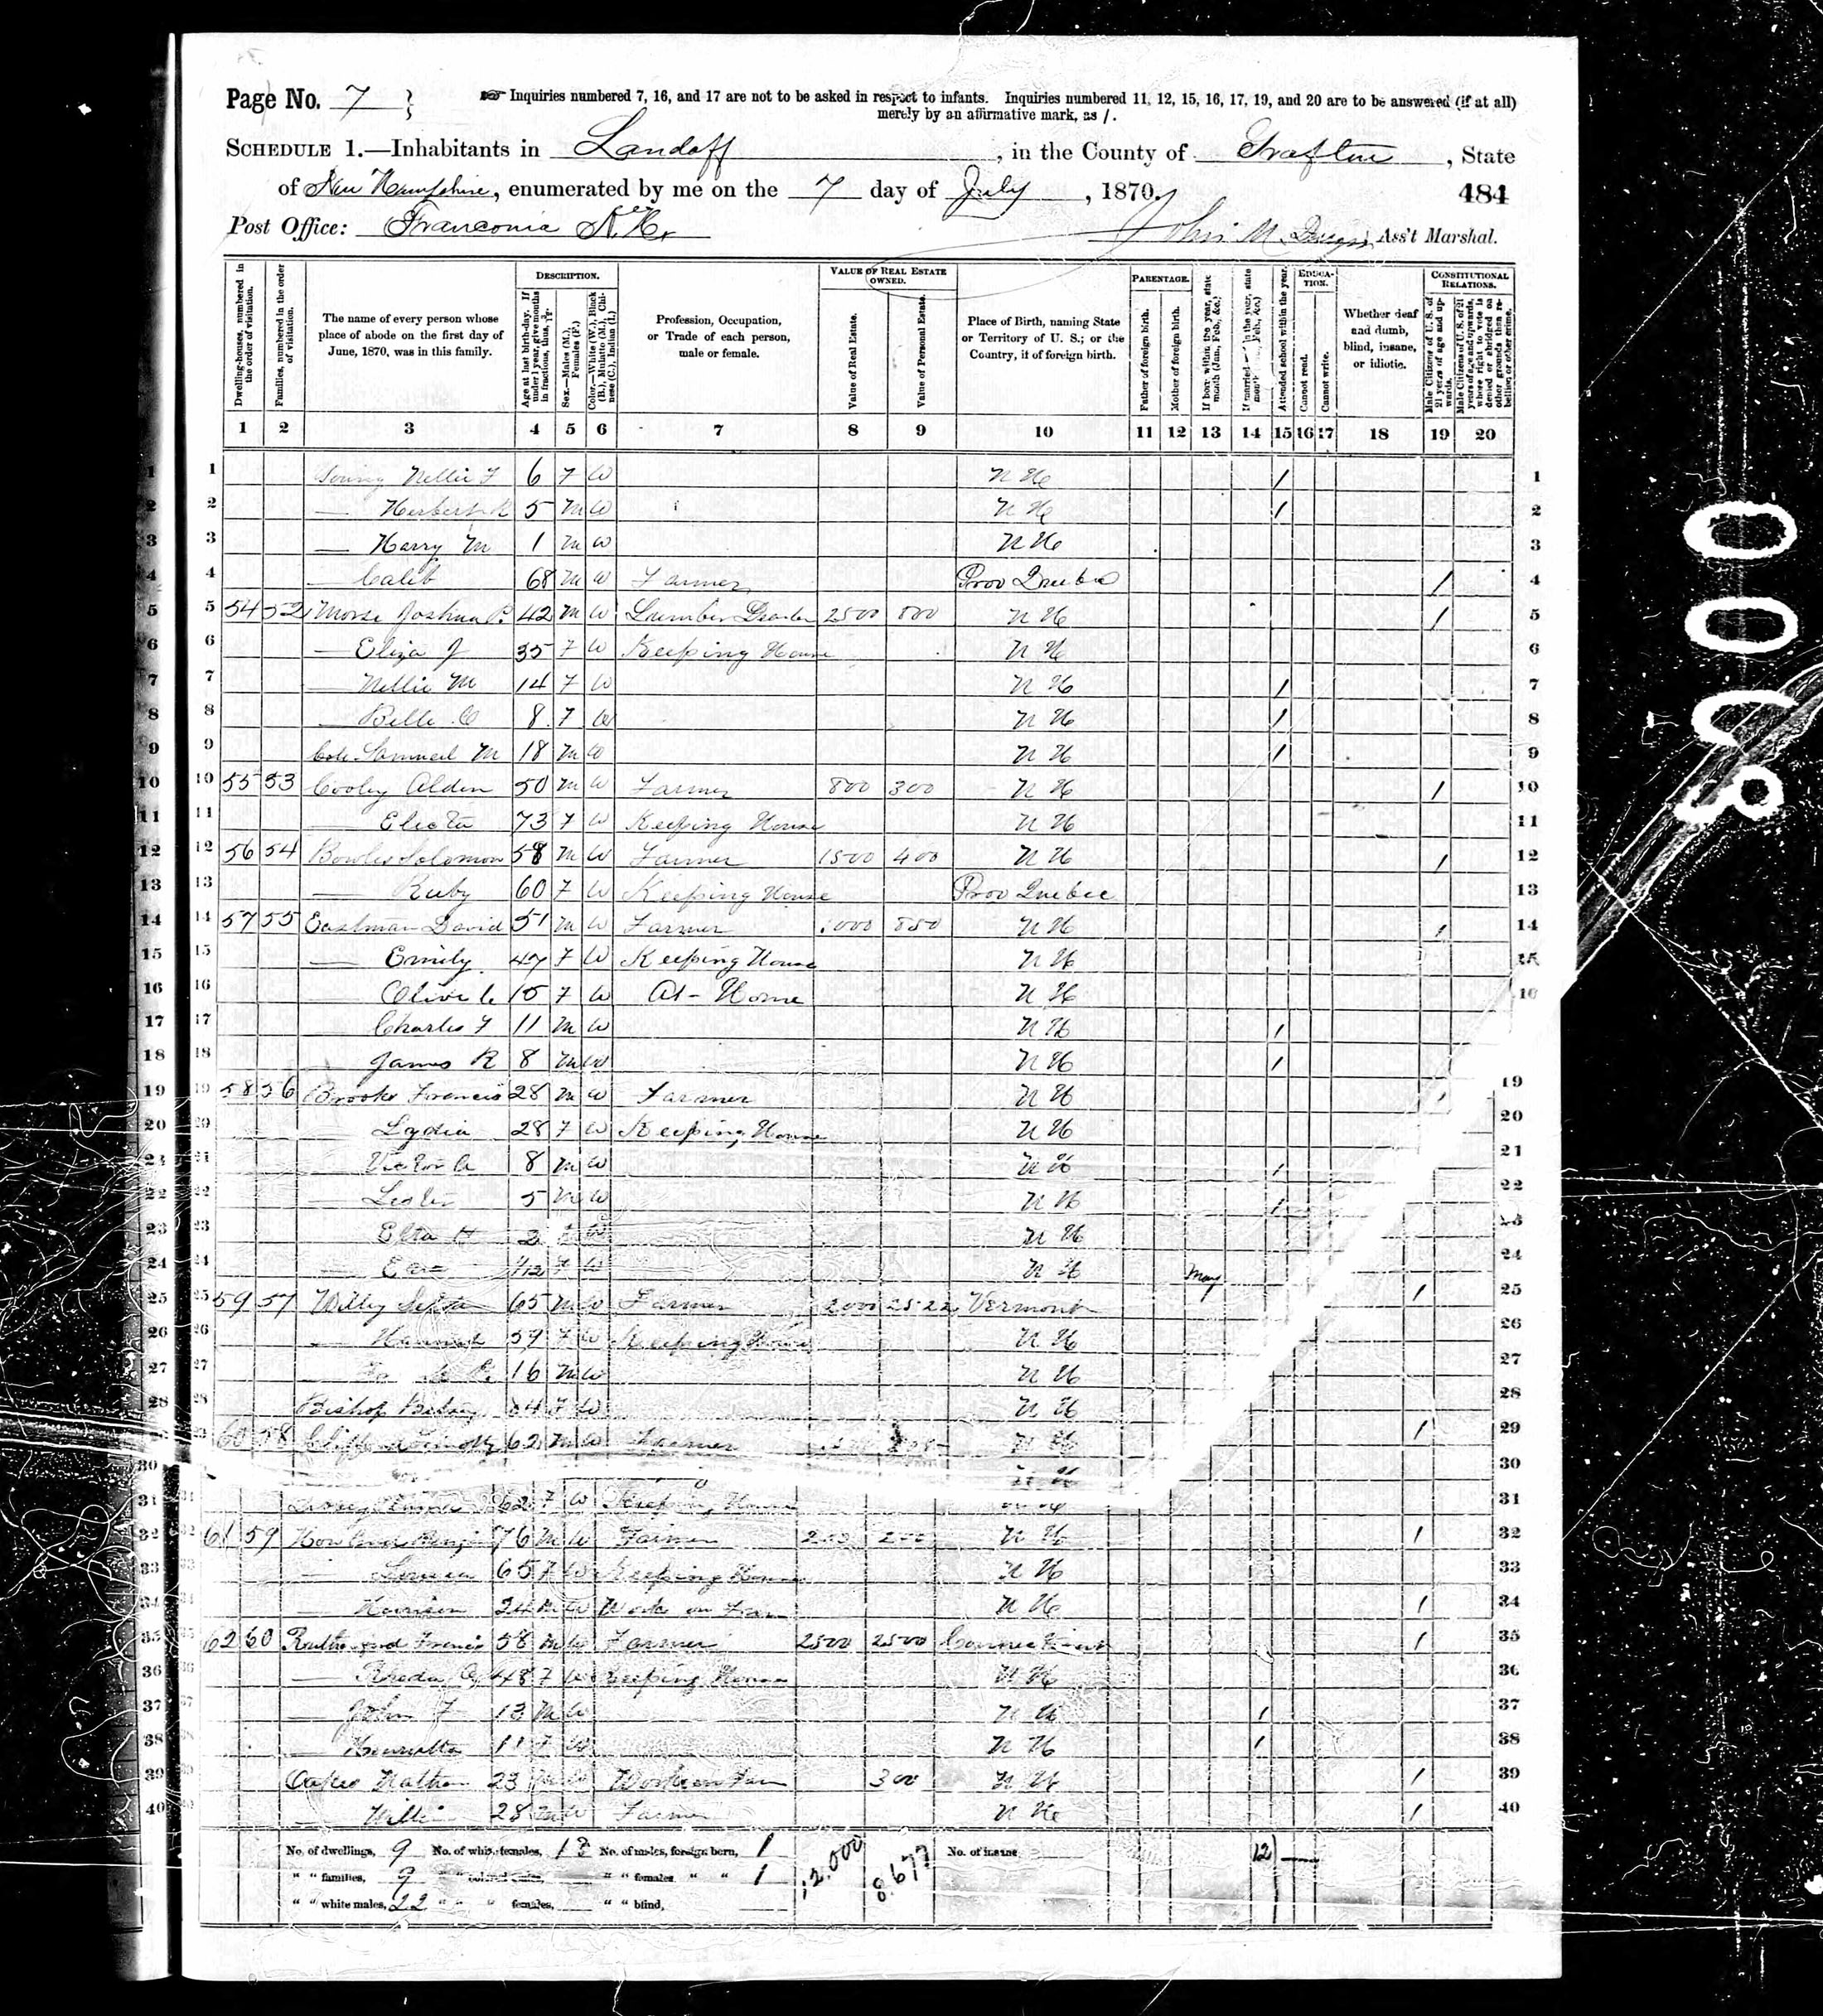 Page No. 7
☞ Inquiries numbered 7, 16, and 17 are not to be asked in respect to infants. Inquiries numbered 11, 12, 15, 16, 17, 19, and 20 are to be answered (if at all)
merely by an affirmative mark, as /.
SCHEDULE 1.—Inhabitants in Landaff, in the County of Grafton, State
of New Hampshire, enumerated by me on the 7 day of July, 1870. 484
Post Office: Franconia N.H. John M Ass't Marshal.
Dwelling-houses, numbered in the order of visitation.
Families, numbered in the order of visitation.
The name of every person whose place of abode on the first day of June, 1870, was in this family.
DESCRIPTION.
Age at last birth-day. If under 1 year, give months in fractions, thus, 3/12.
Sex.—Males (M.), Females (F.)
Color.—White (W.), Black (B.), Mulatto (M.), Chinese (C.), Indian (I.)
Profession, Occupation, or Trade of each person, male or female.
VALUE OF REAL ESTATE OWNED.
Value of Real Estate.
Value of Personal Estate.
Place of Birth, naming State or Territory of U. S.; or the Country, if of foreign birth.
PARENTAGE.
Father of foreign birth.
Mother of foreign birth.
If born within the year, state month (Jan., Feb., &c.)
If married in the year, state month Feb., &c.)
Attended school within the year.
EDUCATION.
Cannot read.
Cannot write.
Whether deaf and dumb, blind, insane, or idiotic.
CONSTITUTIONAL RELATIONS.
Male Citizens of U. S. of 21 years of age and upwards.
Male Citizens of U. S. of 21 years of age and upwards, where right to vote is denied or abridged on other grounds than rebellion or other crime.
1 2 3 4 5 6 7 8 9 10 11 12 13 14 15 16 17 18 19 20
1 Nellie F 6 F W N H / 1
2 — Herbert 5 M W N H / 2
3 — Harry M 1 M W N H 3
4 — Calib 68 M W Farmer Prov Quebec / 4
5 54 52 Morse Joshua P. 42 M W Lumber Dealer 2500 800 N H / 5
6 — Eliza J 35 F W Keeping House N H 6
7 — Nellie M 14 F W N H / 7
8 — Belle C 8 F W N H / 8
9 Cole Samuel M 18 M W N H / 9
10 55 53 Cooley Alden 50 M W Farmer 800 300 N H / 10
11 — Electa 73 F W Keeping House N H 11
12 56 54 Bowles Solomon 58 M W Farmer 1500 400 N H / 12
13 — Ruby 60 F W Keeping House Prov Quebec 13
14 57 55 Eastman David 51 M W Farmer 1000 850 N H / 14
15 — Emily 47 F W Keeping House N H 15
16 — Olive C 15 F W At-Home N H 16
17 Charles F 11 M W N H / 17
18 — James R 8 M W N H / 18
19 58 56 Brooks Francis 28 M W Farmer N H / 19
20 — Lydia 28 F W Keeping House N H 20
21 — Victor A 8 M W N H / 21
22 — Leslie 5 M W N H / 22
23 — H 2 W N H 23
24 — 1/12 F W N H May 24
25 59 57 Willey 65 M W Farmer 2000 2522 Vermont / 25
26 — Hannah 59 F W Keeping House N H 26
27 — 16 M W N H 27
28 Bishop Betsey 84 F W N H 28
29 60 58 62 M W Farmer N H / 29
30 N H 30
31 62 F W Keeping House 31
32 61 59 76 M W Farmer 200 200 N H / 32
33 — 65 F W Keeping House N H 33
34 — Harrison 24 M W Work on Farm N H / 34
35 62 60 Rutherford Francis 58 M W Farmer 2500 2500 Connecticut / 35
36 — Rhoda 48 F W Keeping House N H 36
37 — John F 13 M W N H / 37
38 — Henrietta 11 F W N H / 38
39 Oakes Nathan 23 M W Work on Farm 300 N H / 39
40 — 28 M W Farmer N H / 40
No. of dwellings, 9 No. of white females, 18 No. of males, foreign born, 1 12.000 8.677 No. of insane 12
" " families, 9 " " colored males, " " females " " 1
" " white males, 22 " " females, " " blind,
003